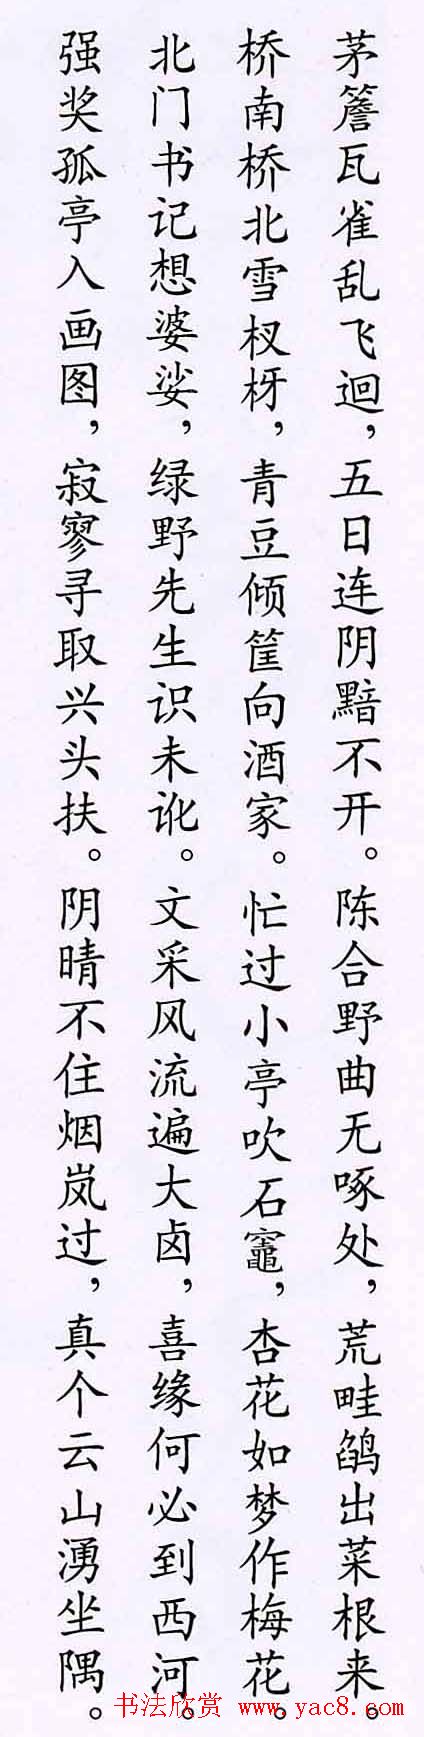 茅簷瓦雀乱飞迴，五日连阴黯不开。陈合野曲无啄处，荒畦鹐出菜根来。
桥南桥北雪杈枒，青豆倾筐向酒家。忙过小亭吹石竈，杏花如梦作梅花。
北门书记想婆娑，绿野先生识未讹。文采风流遍大卤，喜缘何必到西河。
强奖孤亭入画图，寂寥寻取兴头扶。阴晴不住烟岚过，真个云山湧坐隅。
书法欣赏 www.yac8.com